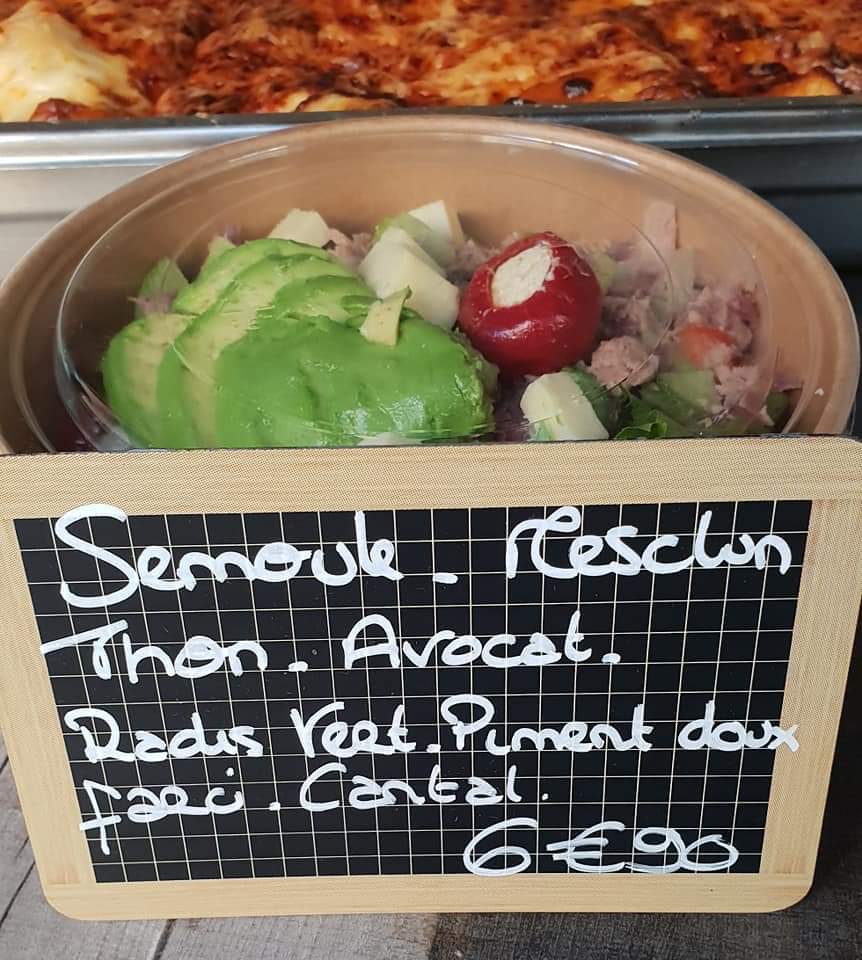 Semoule - Mesclun
Thon. Avocat.
Radis Vert. Piment doux
farci. Cantal.
6€90